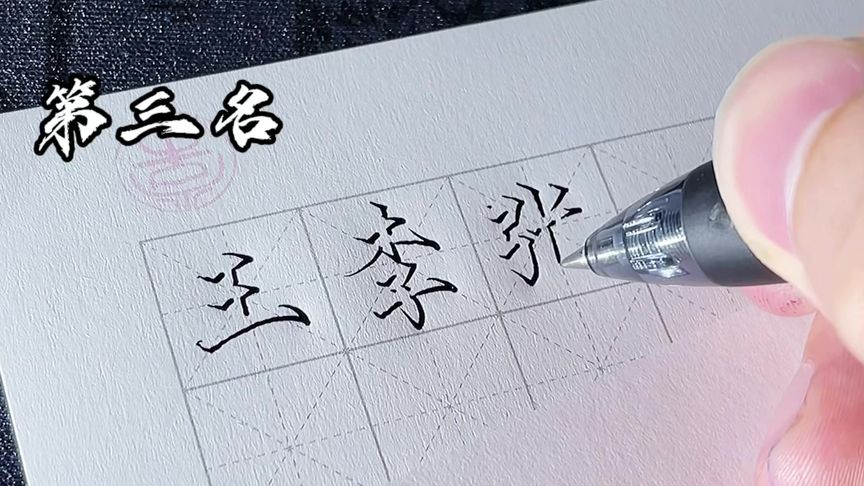 第三名
王李张